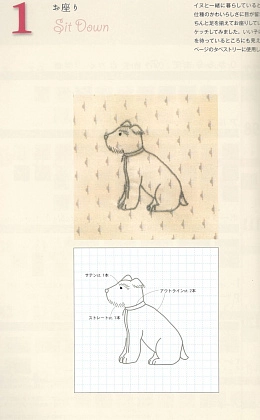 1
お座り
Sit Down
イヌと一緒に暮らしていると
仕種のかわいらしさに目が留
ちんと足を揃えてお座りして
ケッチしてみました。いい子に
を待っているところにも見え
ページのタペストリーに使用し
サテンst. 1本
アウトラインst. 2本
ストレートst. 1本